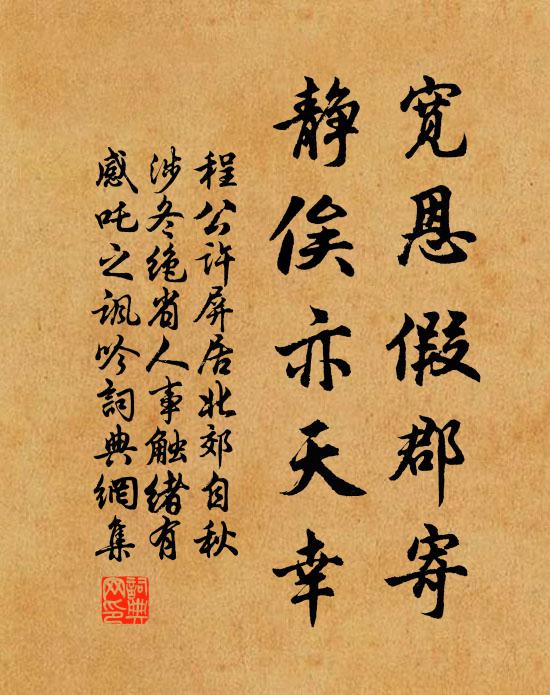 宽恩假郡寄
静俟亦天幸
程公许屏居北郊自秋
涉冬绝省人事触绪有
感吒之讽吟詞典網集